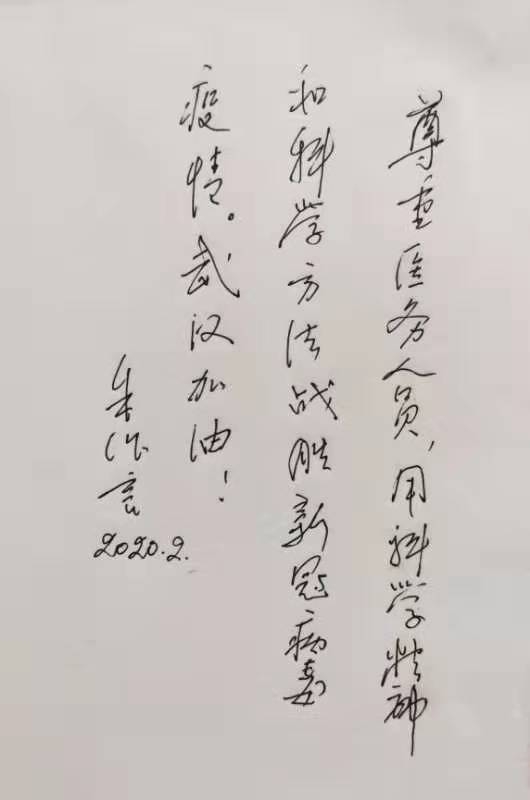 尊重医务人员，用科学精神
和科学方法战胜新冠病毒
疫情。武汉加油！
朱作言
2020.2.